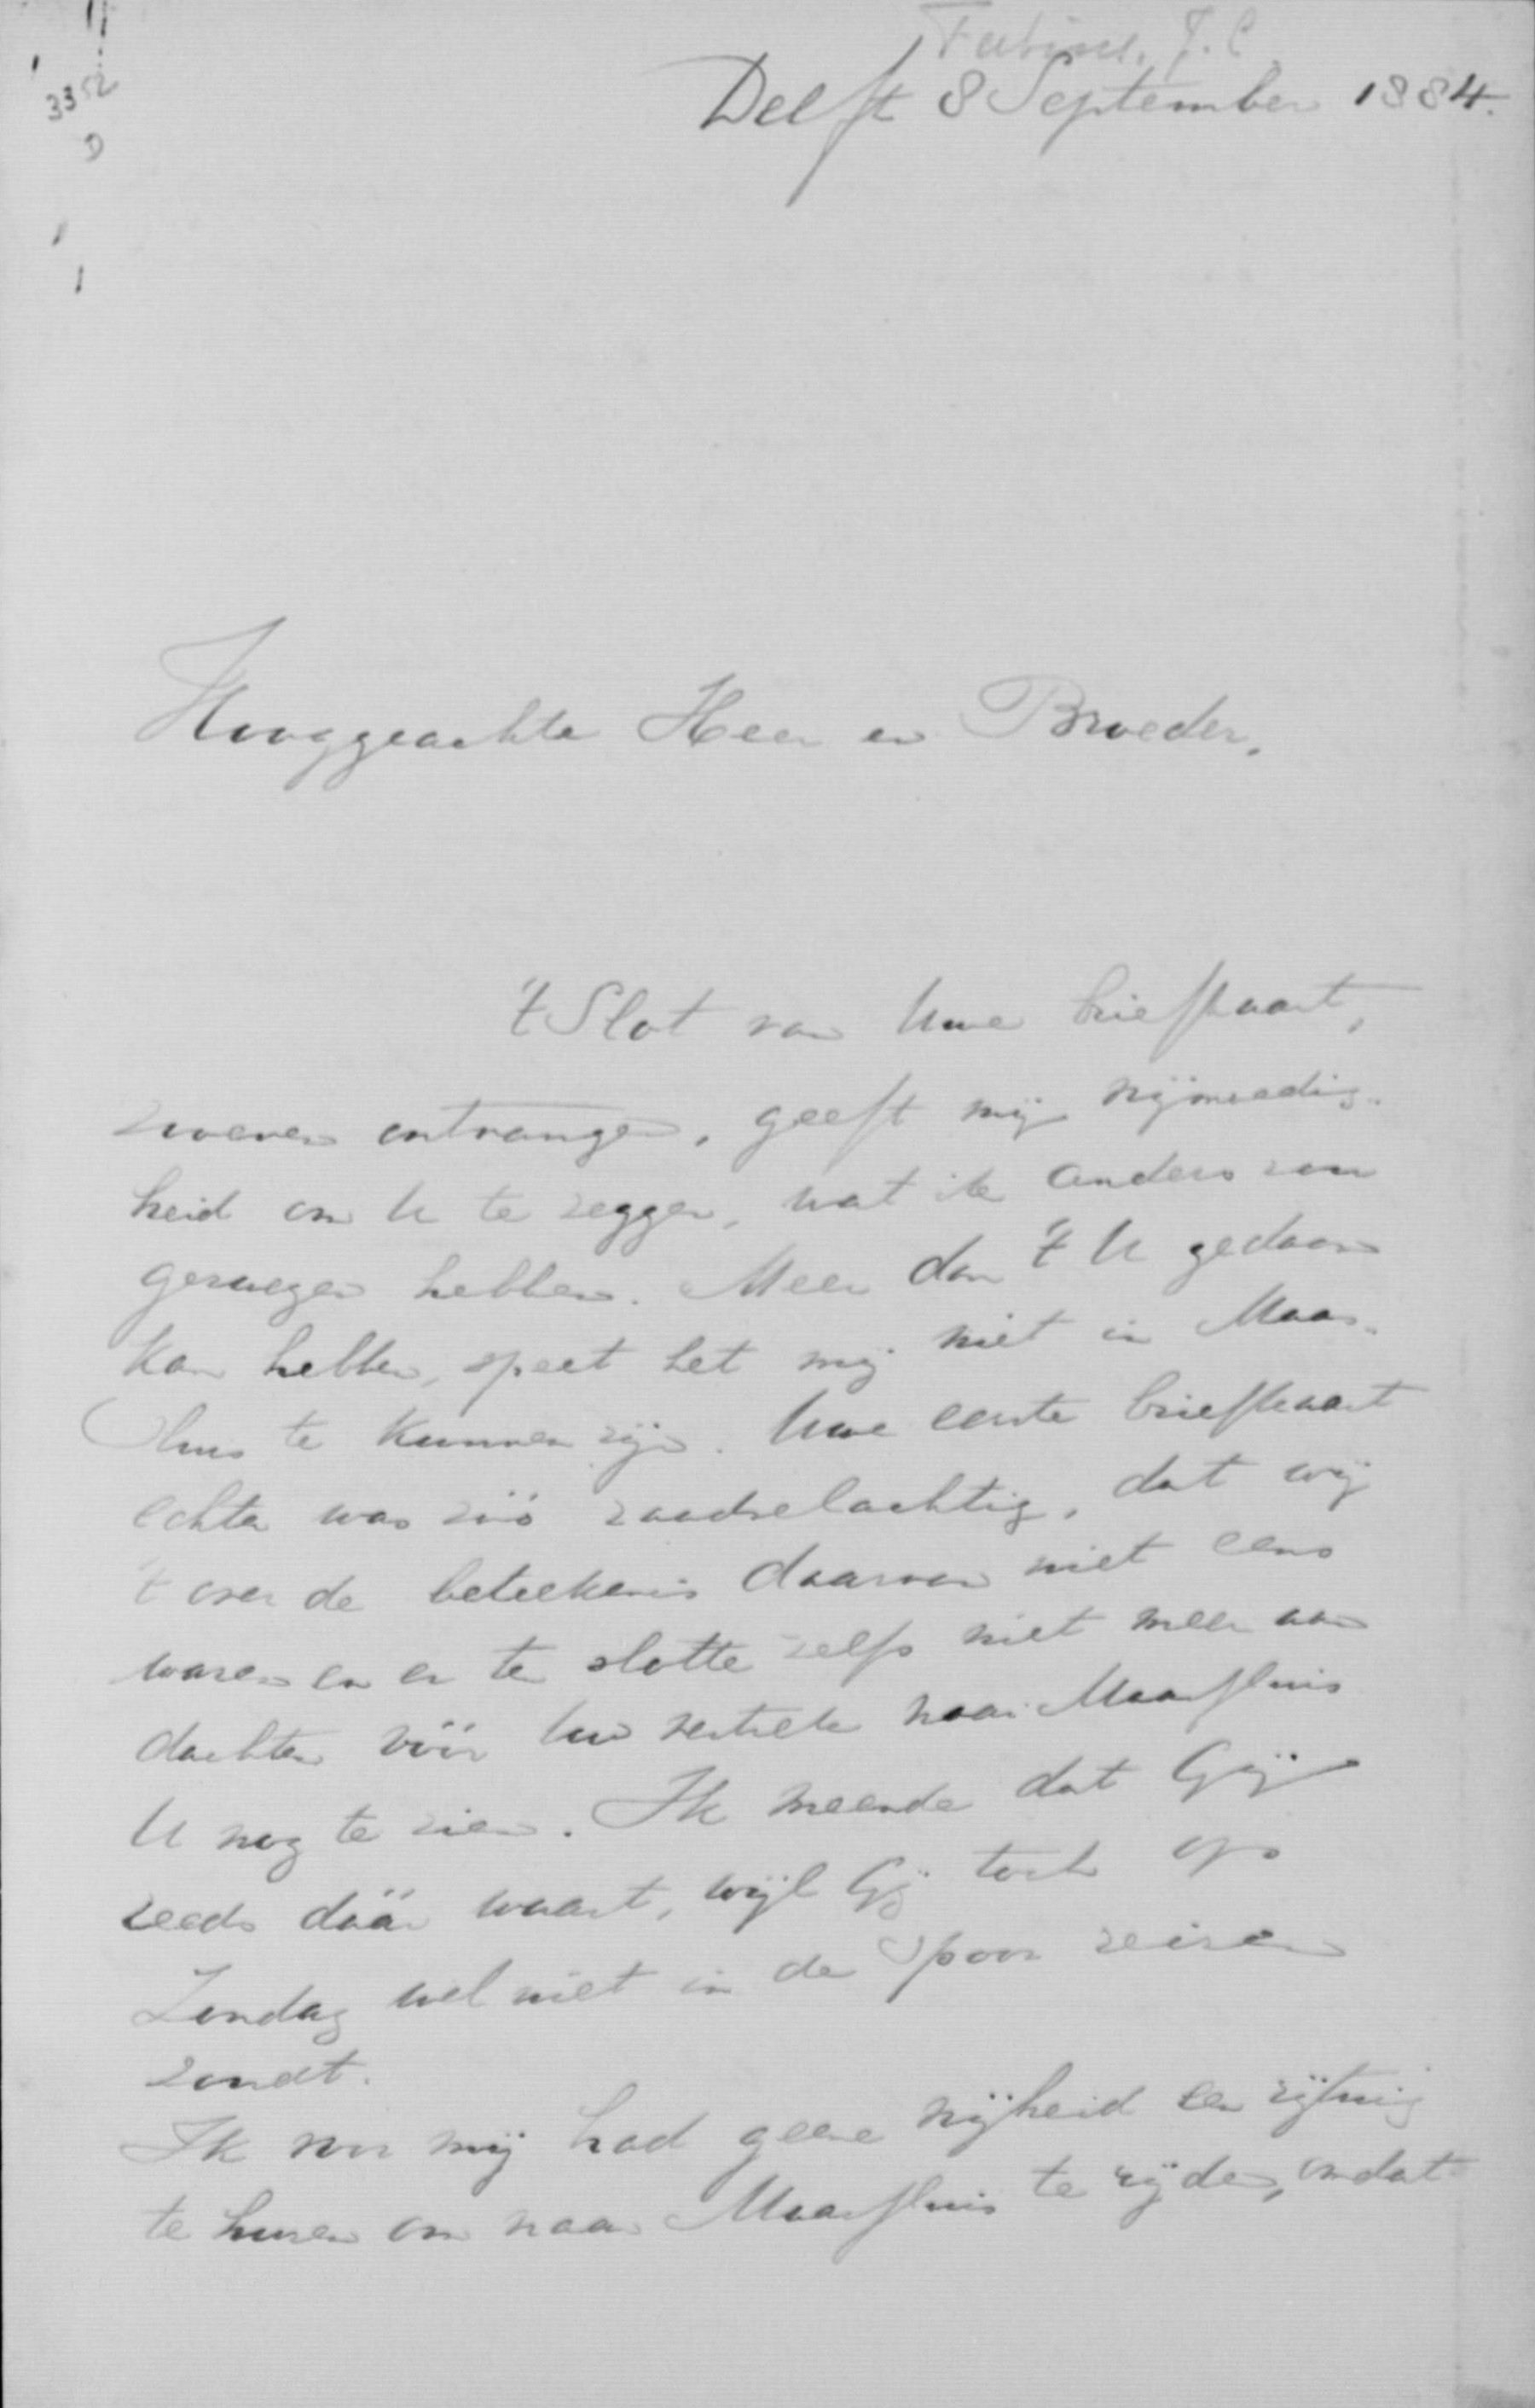 Fabius, J. C
Delft 8 September 1884.
3352
D
Hooggeachte Heer en Broeder,
't Slot van Uwe briefkaart,
zooeven ontvangen, geeft mij vrijmoedig-
heid om U te zeggen, wat ik anders zou
gezwegen hebben. Meer dan 't U gedaan
kan hebben, speet het mij niet in Maas-
sluis te kunnen zijn. Uwe eerste briefkaart
echter was zóó raadselachtig, dat wij
't over de beteekenis daarvan niet eens
waren en er ten slotte zelfs niet meer aan
dachten vóór Uw vertrek naar Maassluis
U nog te zien. Ik meende dat Gij
reeds dáár waart, wijl Gij toch op
Zondag wel niet in de Spoor reizen
zoudt.
Ik voor mij had geene vrijheid een rijtuig
te huren om naar Maassluis te rijden, omdat